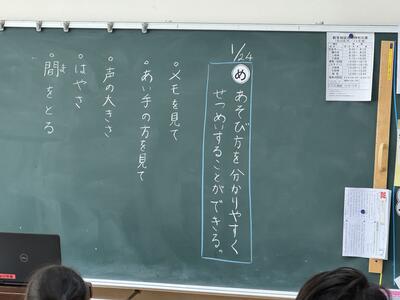 1/24
め
あそび方を分かりやすく
せつめいすることができる。
•メモを見て
•あい手の方を見て
•声の大きさ
•はやさ
•間をとる
ま
DELL